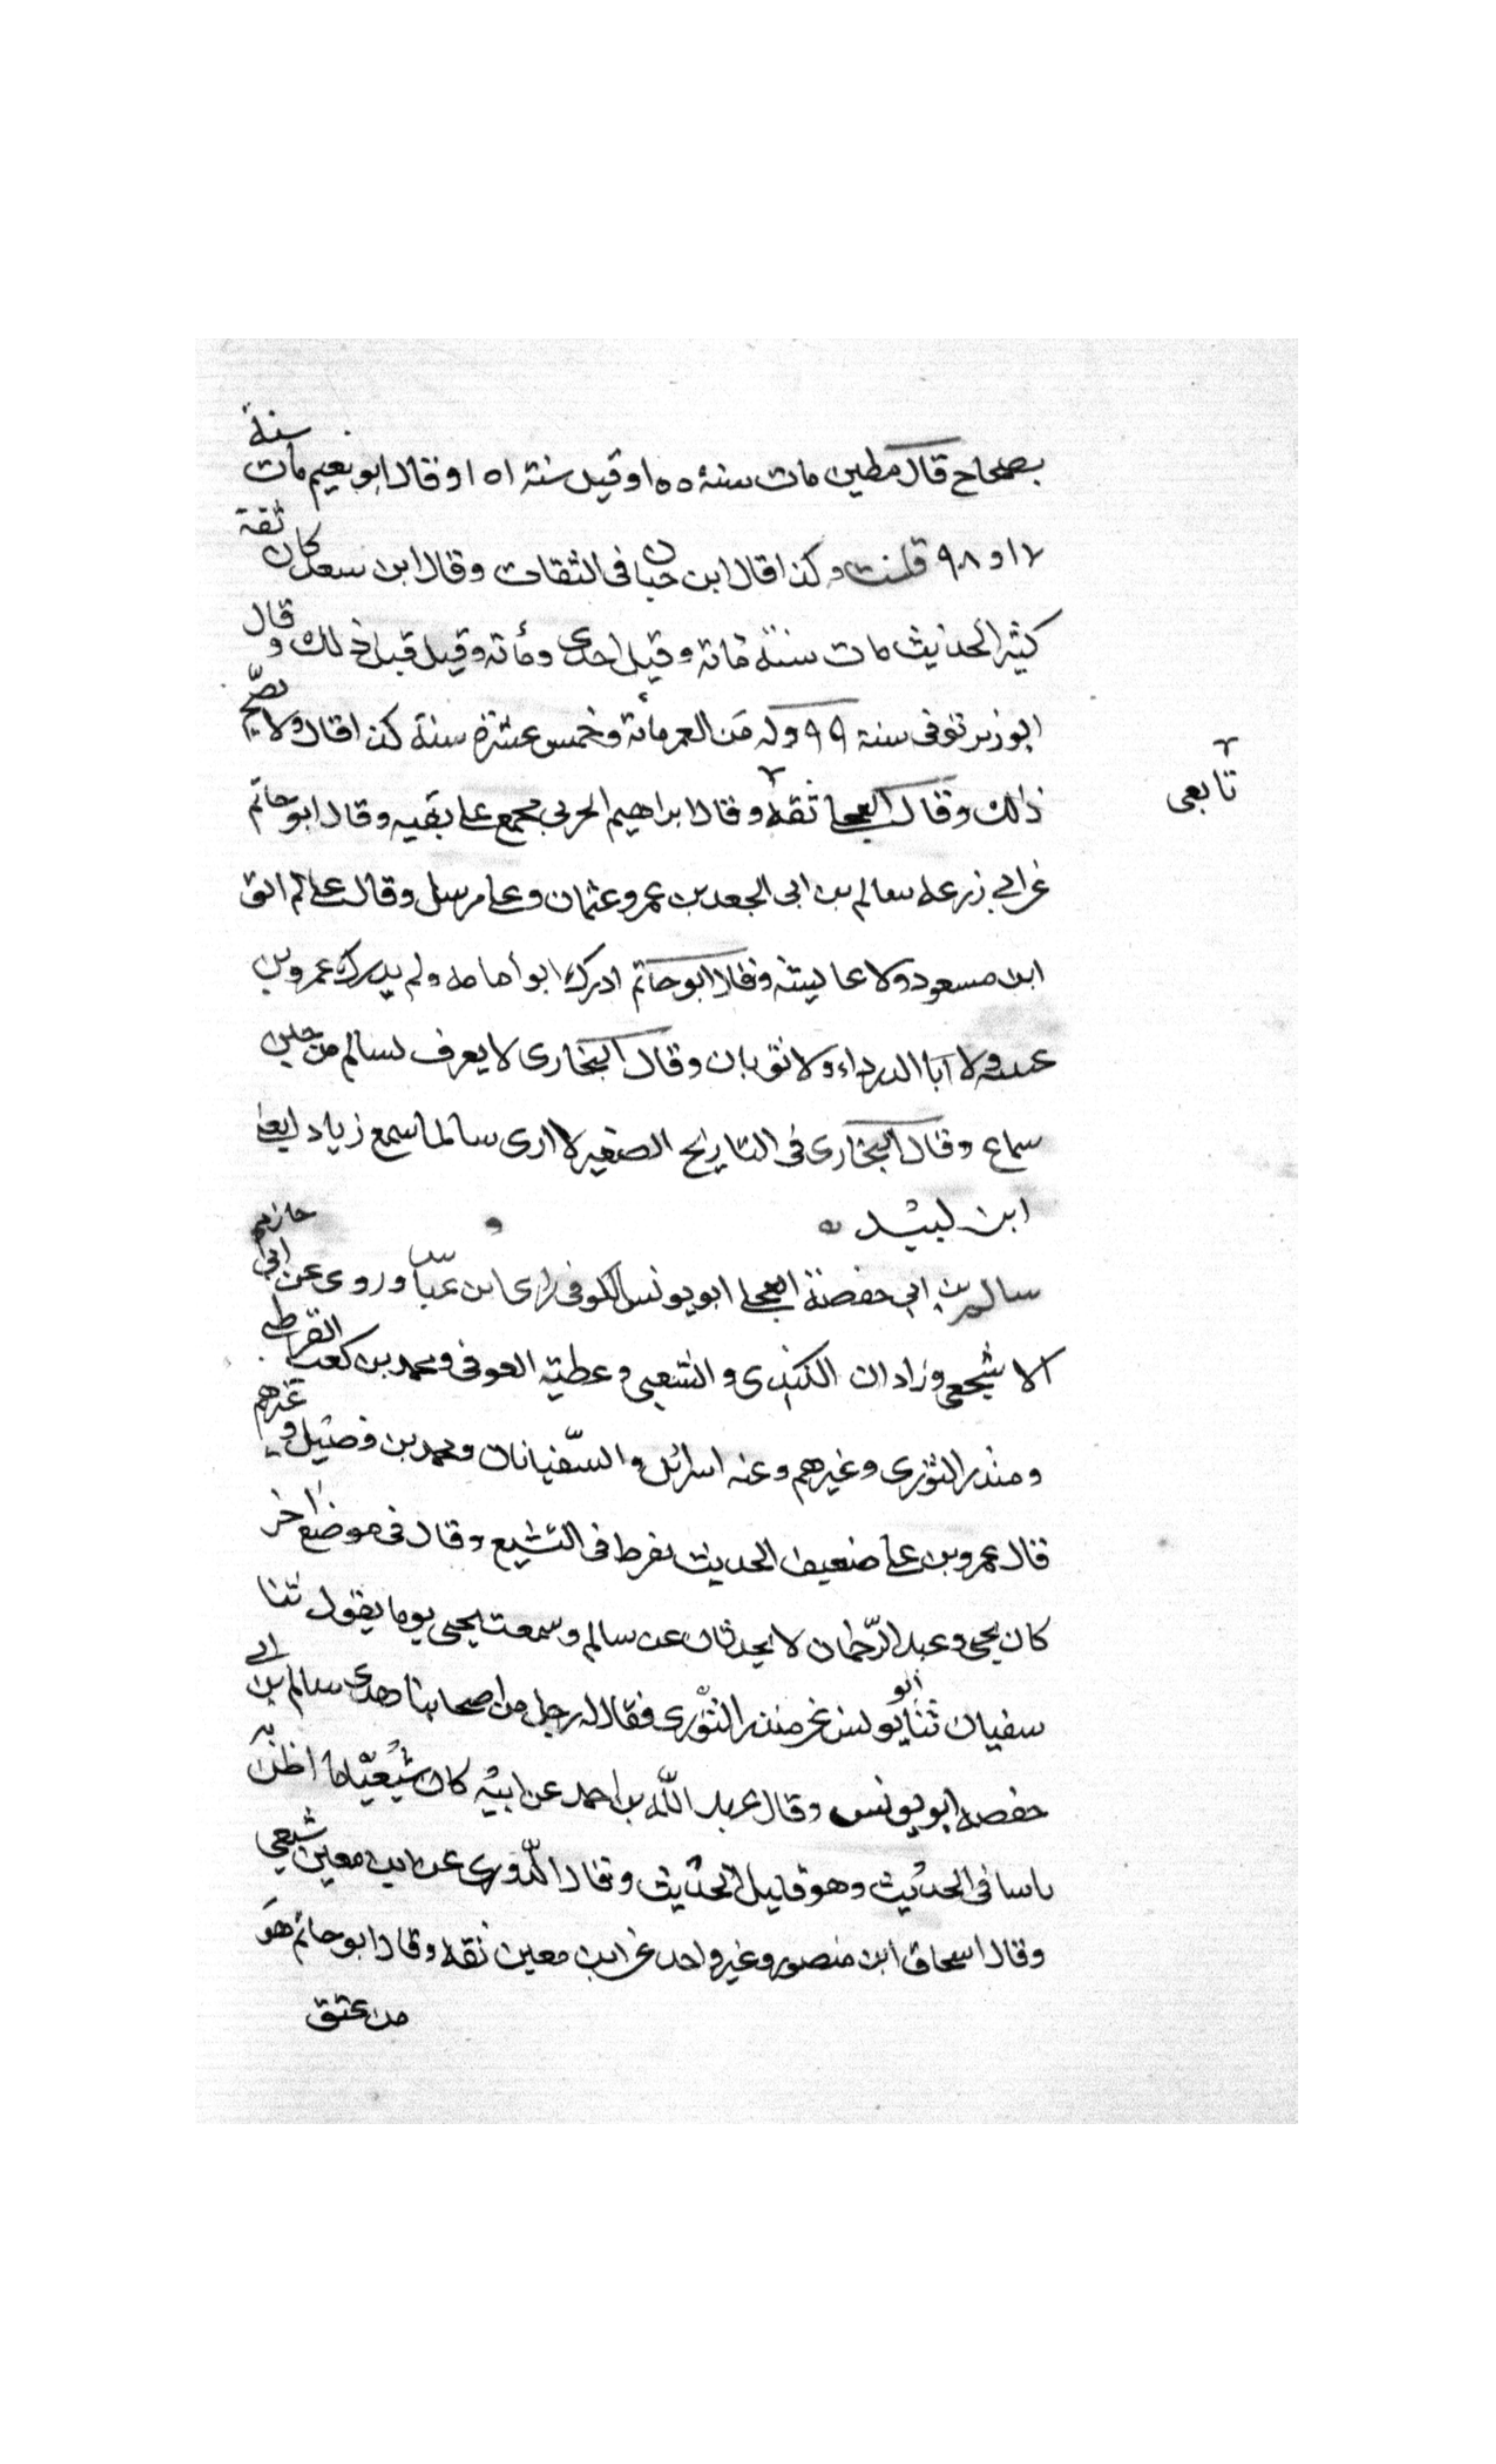 بصحاح قال مطين مات سنة ١٥٥ وقيل سنة ١٥١ وقال ابو نعيم مات سنة
٩٧ او ٩٨ قلت وكذا قال ابن حبان فى الثقات وقال ابن سعد كان ثقة
كثير الحديث مات سنة مائة وقيل احدى ومأئة وقيل قبل ذلك وقال
ابو زبر توفى سنة ٩٩ وله من العمر مائة وخمس عشرة سنة كذا قال ولا يصح
ذلك وقال العجلي ثقة وقال ابراهيم الحربي مجمع على ثقته وقال ابو حاتم
تابعى
عن ابي زرعه سالم بن ابى الجعد عن عمر وعثمان وعلى مرسل وقال على لم يلق
ابن مسعود ولا عايشة وقال ابو حاتم ادرك ابو امامه ولم يدرك عمرو بن
عبسه ولا ابا الدرداء ولا ثوبان وقال البخارى لا يعرف لسالم من
سماع وقال البخارى فى التاريخ الصغير لا ارى سالما سمع زياد
ابن لبيد
سالم بن ابي حفصة العجلي ابو يونس الكوفى راى ابن عباس وروى عن ابي حازم
الاشجعى وزادان الكندى والشعبى وعطية العوفى ومحمد بن كعب القرظى
ومنذر الثورى وغيرهم وعنه اسرائل والسفيانان ومحمد بن فضيل وغيرهم
قال عمرو بن على ضعيف الحديث يفرط فى التشيع وقال فى موضع اخر
كان يحيى وعبد الرحمان لا يحدثان عن سالم وسمعت يحيى يوما يقول ثنا
سفيان ثنا ابو يونس عن منذر الثورى فقال له رجل من اصحابنا هذا سالم بن ابي
حفصه ابو يونس وقال عبد الله بن احمد عن ابيه كان شيعيا ما اظن به
باسا فى الحديث وهو قليل الحديث وقال الدورى عن ابن معين شيعي
وقال اسحاق ابن منصور وغير واحد عن ابن معين ثقه وقال ابو حاتم هو
من عتق